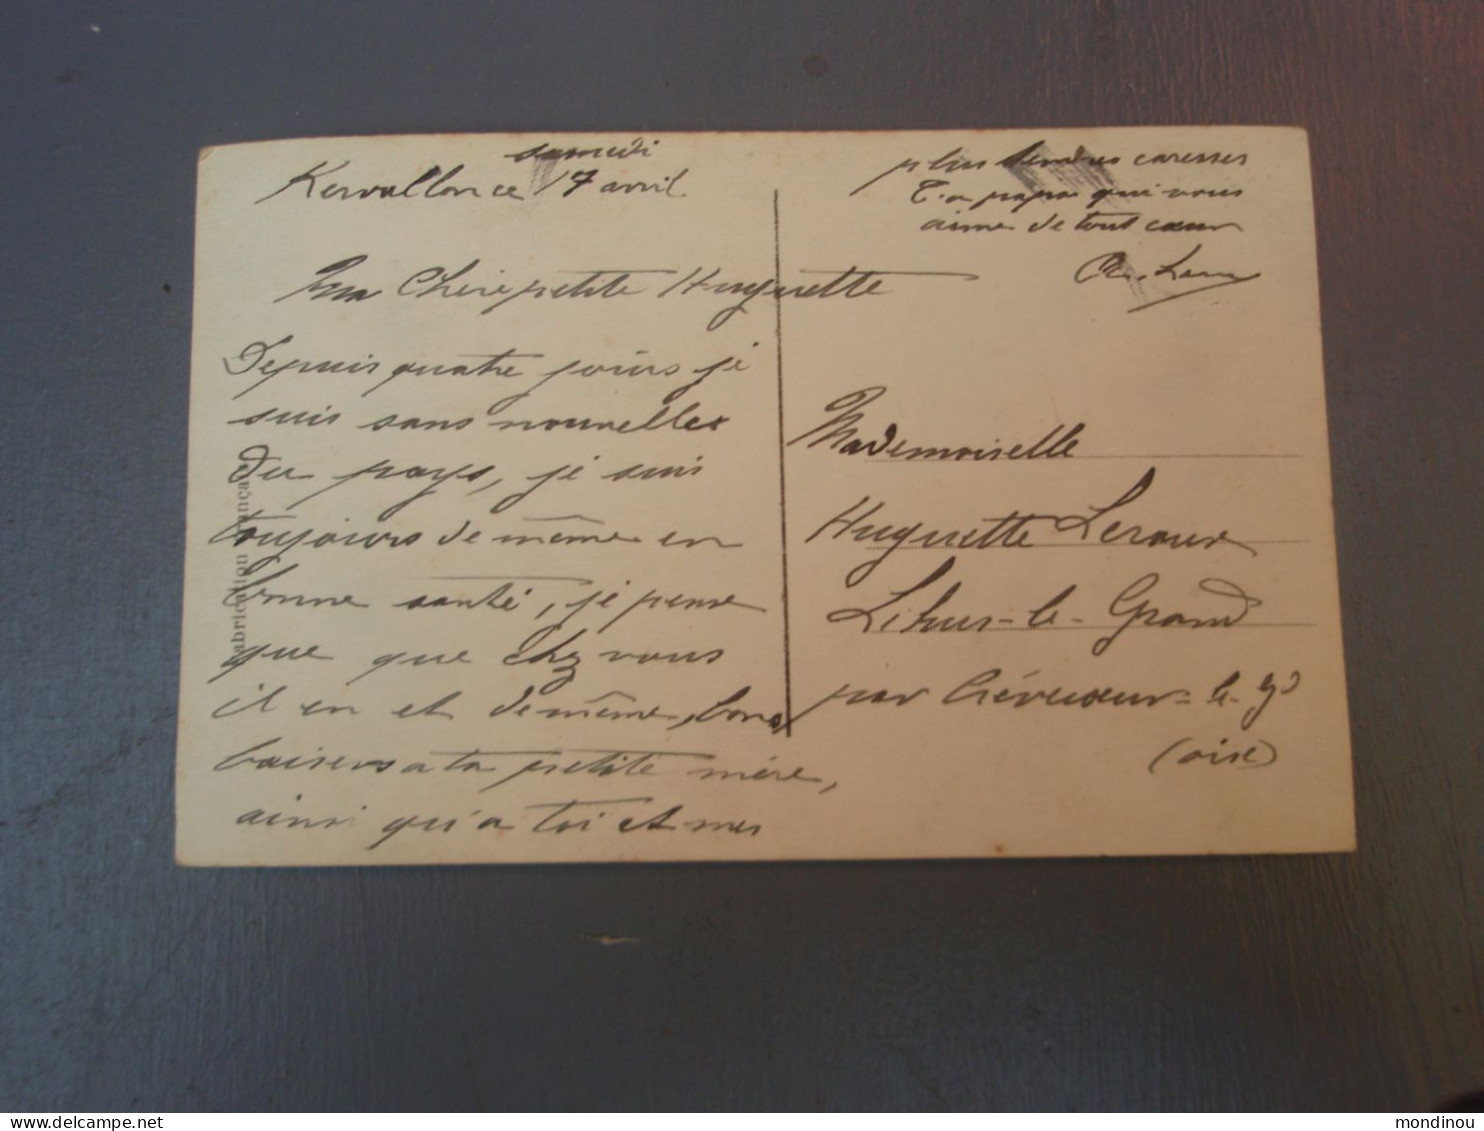 samedi
Kervallon ce 17 avril
Ma Chère petite Huguette
Depuis quatre jours je
suis sans nouvelles
du pays, je suis
toujours de même en
bonne santé, je pense
que que chez vous
il en et de même, bons
baisers a ta petite mère,
ainsi qu'a toi et mes
plus tendres caresses
Ton papa qui vous
aime de tout cœur
Fabrication Française
Mademoiselle
Huguette Leroux
Lihus-le-Grand
par Crévecœur-le-gd
(oise)
mondinou